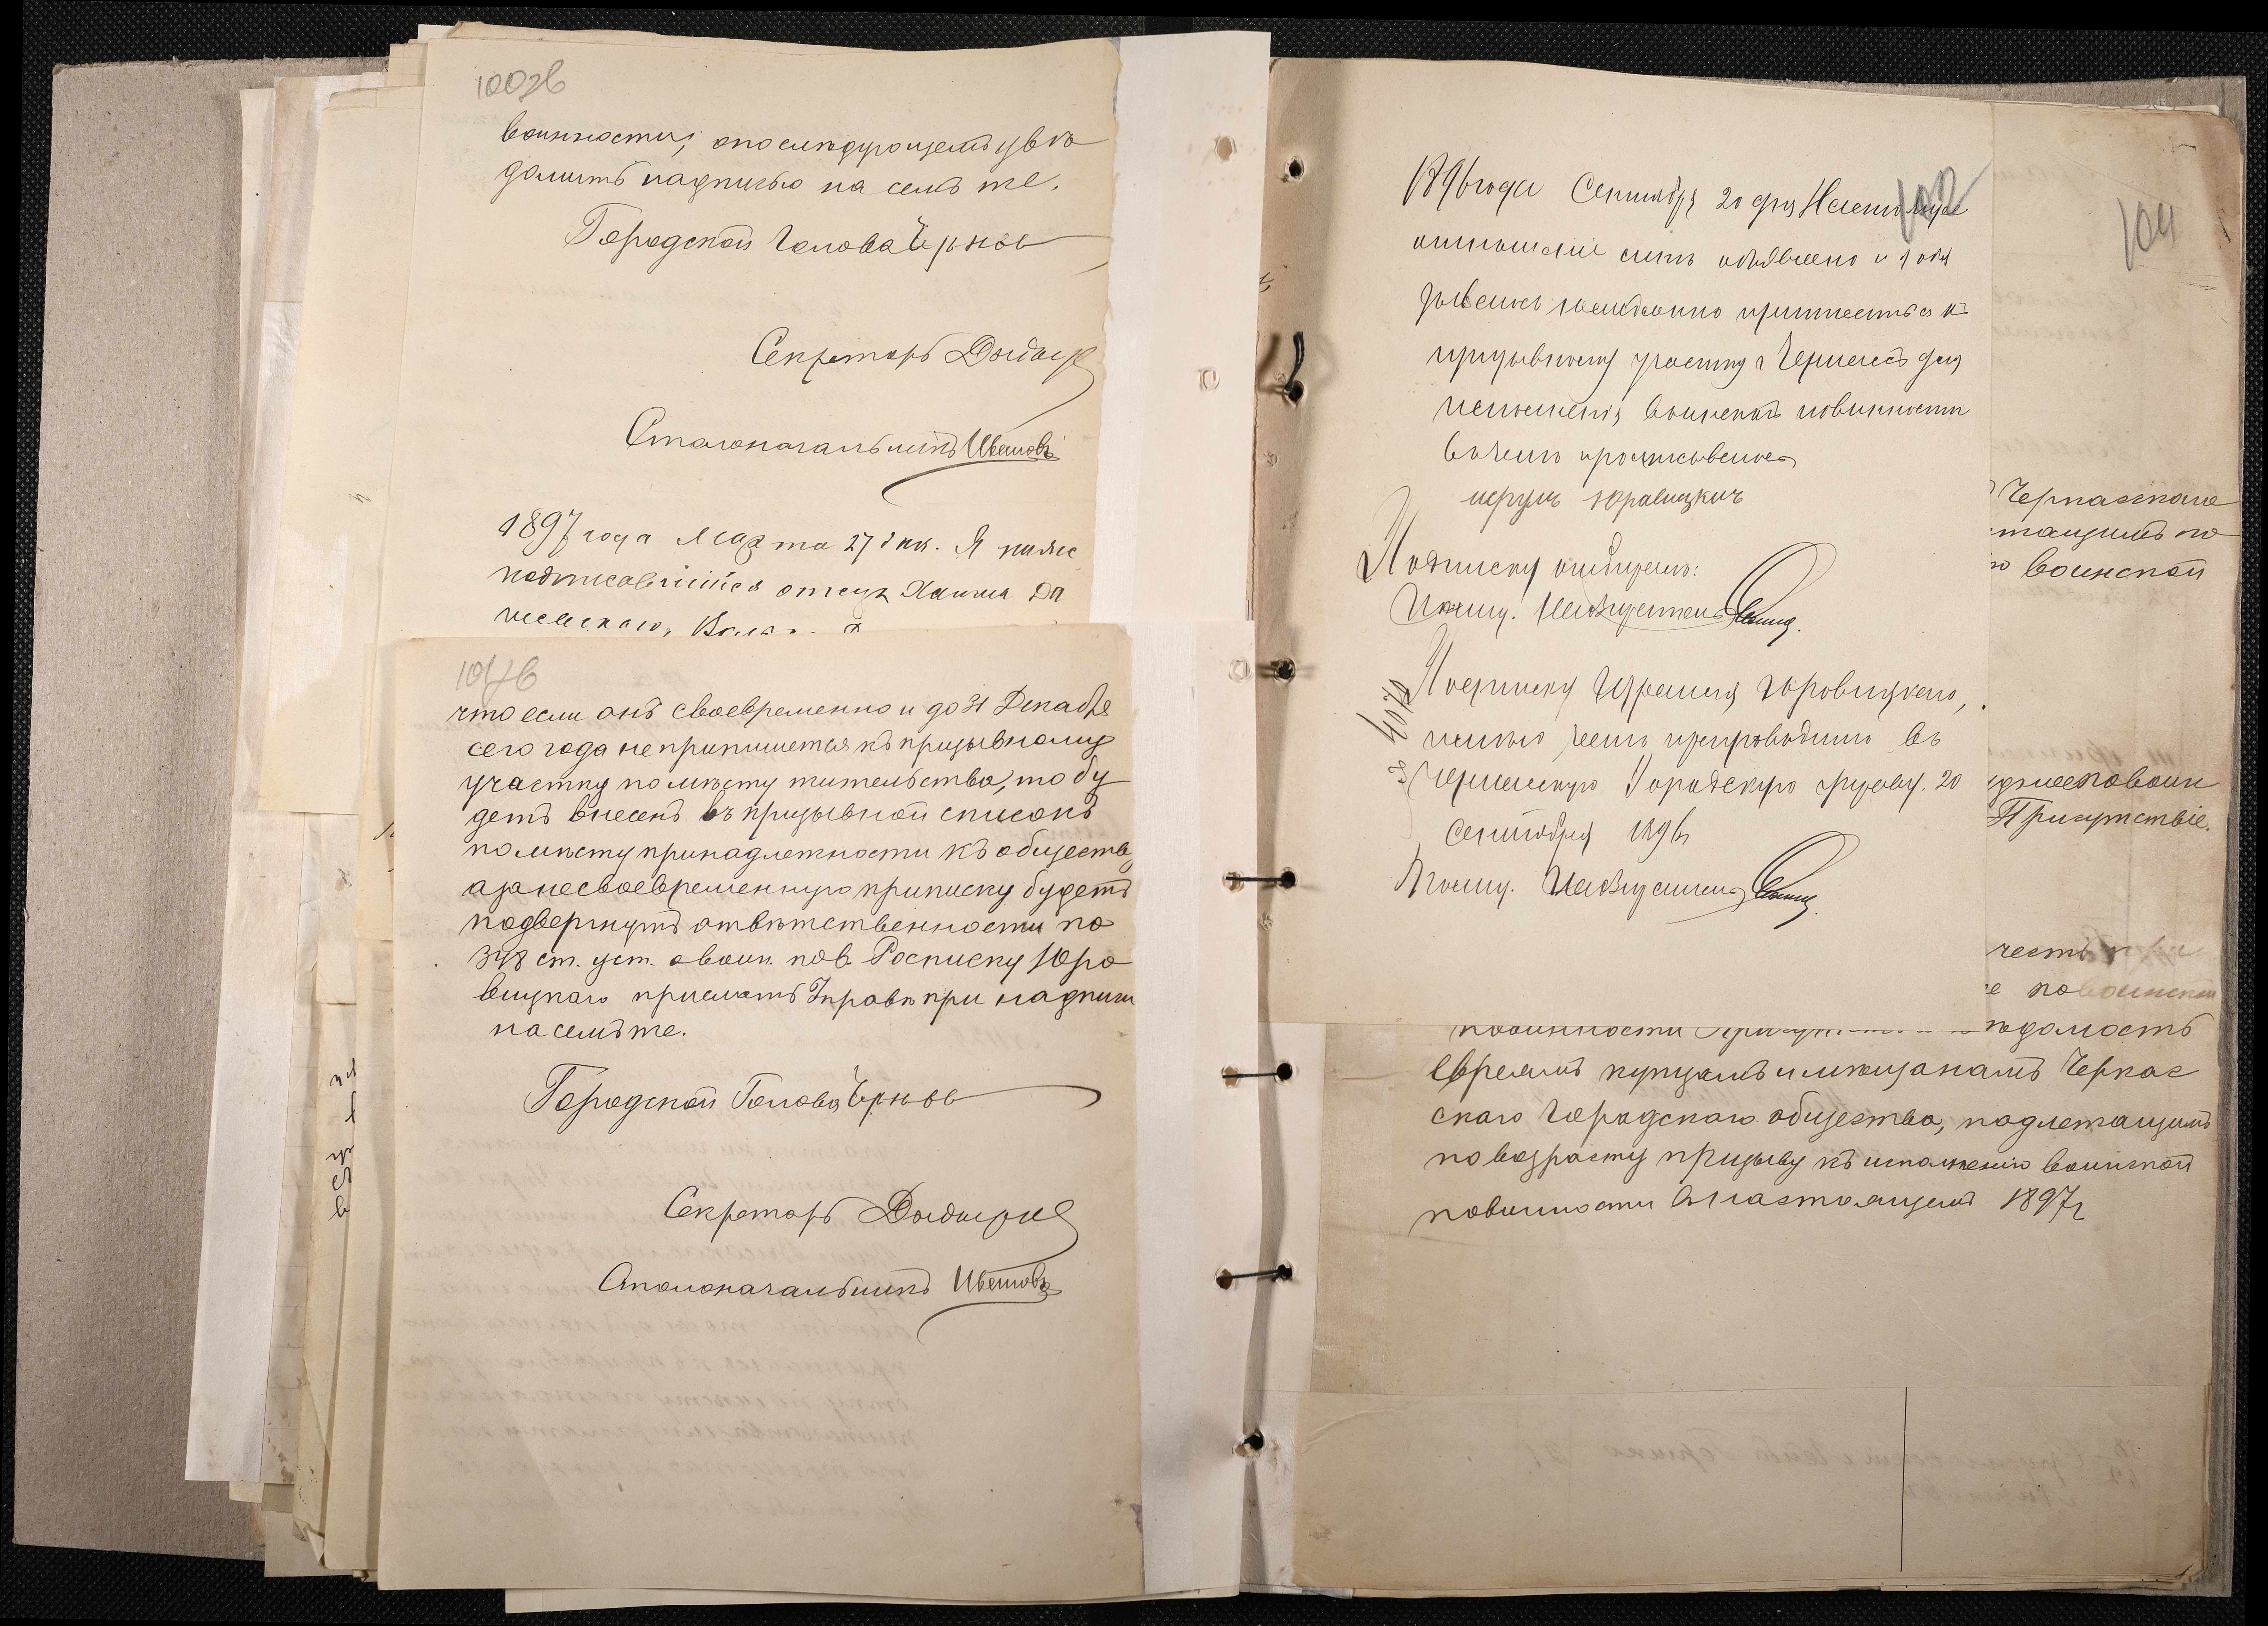 100об
винности, о послѣдующемъ увѣ
домить надписью на семъ же.
Городской Голова Черновъ
Секретарь
Столоначальникъ Ивановъ
1897 года Марта 27 дня. Я ниже
подписавшійся отецъ Хаима
101об
что если онъ своевременно и до 31 Декабря
сего года не припишется къ призывному
участку по мѣсту жительства, то бу
детъ внесенъ въ призывной списокъ
по мѣсту принадлежности къ обществу,
а за несвоевременную приписку будетъ
подвергнутъ отвѣтственности по
ст. уст. о воин. пов. Росписку Юро
вицкаго прислать Управѣ при надписи
на семъ же.
Городской Голова Черновъ
Секретарь
Столоначальникъ Ивановъ
102
1896 года Сентября 20 дня Настоящее
отношеніе мнѣ объявлено и я обя
зываюсь немедленно приписаться къ
призывному участку г Черкасъ для
исполненія воинской повинности
въ чемъ и росписываюсь
Подписку отбиралъ:
Помощ. Надзирателя
4070
Подписку Израиля Юровицкаго,
имѣю честь препроводить въ
Черкасскую Городскую Управу. 20
Сентября 1896
Помощ. Надзирателя
104
Черкасскаго
жащимъ по
воинской
Присутствіе.
честь при
е по воинской
повинности домость
евреямъ купцамъ и мѣщанамъ Черкас
скаго Городскаго общества, подлежащимъ
по возрасту призыву къ исполненію воинской
повинности въ настоящемъ 1897 г